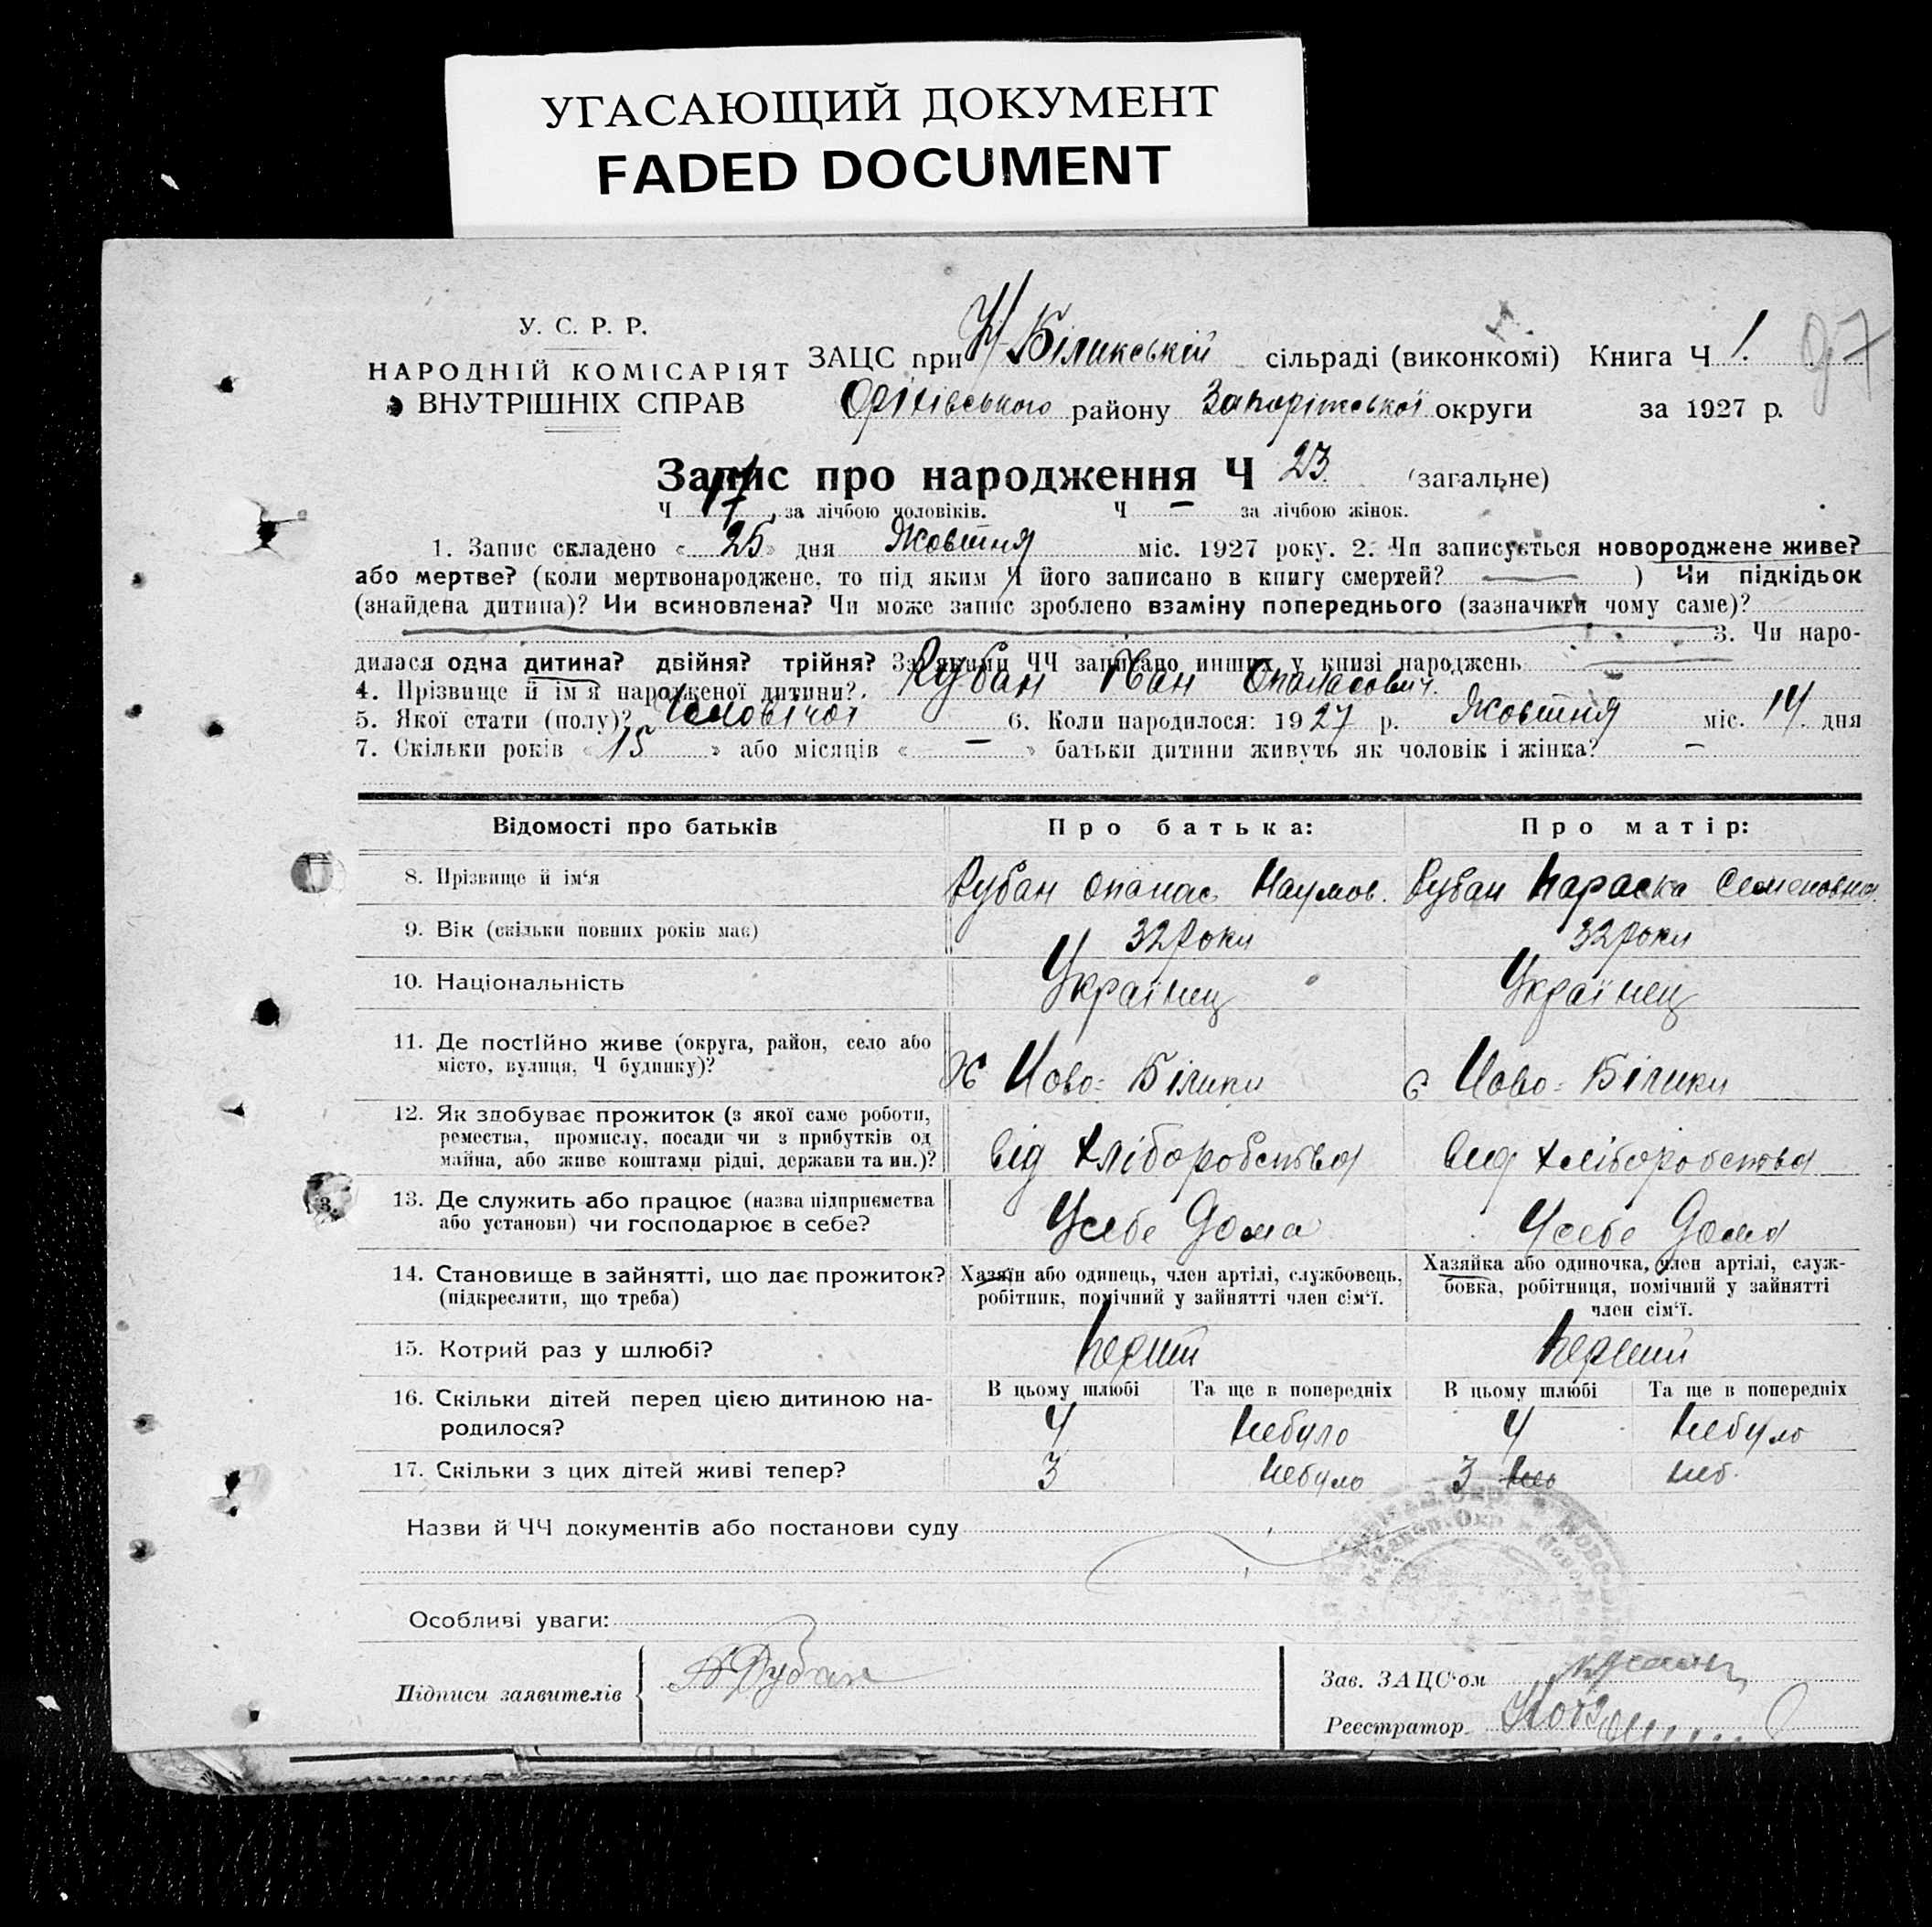 УГАСАЮЩИЙ ДОКУМЕНТ
FADED DOCUMENT
У. С. Р. Р.
НАРОДНІЙ КОМІСАРІЯТ
ВНУТРІШНІХ СПРАВ
ЗАЦС при Н-Біликській сільраді (виконкомі) Книга Ч 1.
97
Оріхівського району Запоріжської округи за 1927 р.
Запис про народження Ч 23 (загальне)
Ч 17, за лічбою чоловіків. Ч — за лічбою жінок.
1. Запис складено « 25 » дня Жовтня міс. 1927 року. 2. Чи записується новороджене живе?
або мертве? (коли мертвонароджене, то під яким Ч його записано в книгу смертей? — ) Чи підкідьок
(знайдена дитина)? Чи всиновлена? Чи може запис зроблено взаміну попереднього (зазначити чому саме)?
3. Чи наро-
дилася одна дитина? двійня? трійня? За якими ЧЧ записано инших у книзі народжень —
4. Прізвище й ім'я народженої дитини? Рубан Іван Опанасович.
5. Якої стати (полу)? Чоловічої 6. Коли народилося: 1927 р. Жовтня міс. 14 дня
7. Скільки років « 15 » або місяців « — » батьки дитини живуть як чоловік і жінка? —
Відомості про батьків Про батька: Про матір:
8. Прізвище й ім'я Рубан Опанас Наумов. Рубан Параска Семеновна
9. Вік (скільки повних років має) 32 роки 32 роки
10. Національність Українец Українец
11. Де постійно живе (округа, район, село або
місто, вулиця, Ч будинку)? Ново-Білики с Ново-Білики
12. Як здобуває прожиток (з якої саме роботи,
ремества, промислу, посади чи з прибутків од
майна, або живе коштами рідні, держави та ин.)? Від хліборобства Вид хліборобства
13. Де служить або працює (назва підприємства
або установи) чи господарює в себе? Усебе Дома Усебе Дома
14. Становище в зайнятті, що дає прожиток?
(підкреслити, що треба)
Хазяїн або одинець, член артілі, службовець,
робітник, помічний у зайнятті член сім'ї.
Хазяйка або одиночка, член артілі, служ-
бовка, робітниця, помічний у зайнятті
член сім'ї.
15. Котрий раз у шлюбі? перший перший
В цьому шлюбі Та ще в попередніх В цьому шлюбі Та ще в попередніх
16. Скільки дітей перед цією дитиною на-
родилося? 4 небуло 4 небуло
17. Скільки з цих дітей живі тепер? 3 небуло 3 неб.
Назви й ЧЧ документів або постанови суду
Особливі уваги:
Підписи заявителів Рубан
Зав. ЗАЦС'ом
Реєстратор